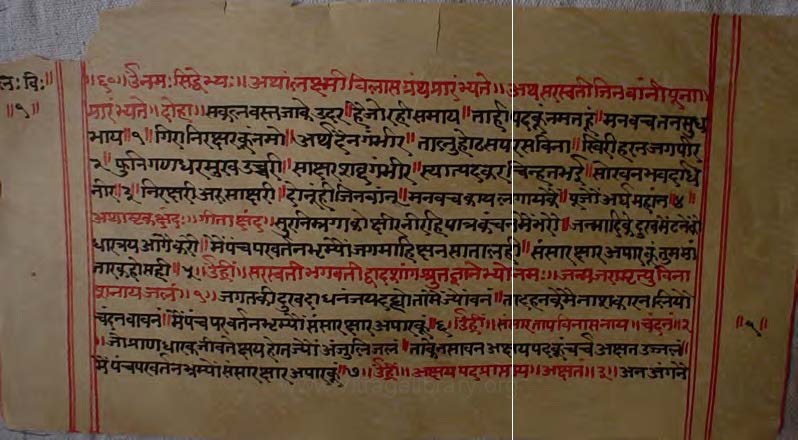 ल॰ वि॰
॥१॥
॥६०॥ ॐ नमः सिद्धेभ्यः॥ अथ लक्ष्मी विलास ग्रंथ प्रारंभ्यते॥ अथ सरस्वती जिनवांनी पूजा
प्रारंभ्यते॥ दोहा॥ सकल वस्त जावे उदर॥ है जो रही समाय॥ ताही पद कूं नमन हूं॥ मन वच तन सुध
भाय॥१॥ गिरा निरक्षर कूं नमो॥ अर्थ दैन गंभीर॥ तालु होठ सपरस विना॥ खिरी हरन जग पीर
२॥ फुनि गणधर मुख उच्चरी॥ साक्षार शब्द गंभीर॥ स्यात्पद कर चिन्हत भई॥ तारवन भवदधि
तीर॥३॥ निरक्षरी अर साक्षरी॥ दोनूं ही जिनवांन॥ मन वच काय लगायकें॥ पूजों अर्घ महांन॥४॥
अथाष्टक छंद॥ गीता छंद॥ सुर निम्नगा को क्षीर नीर हि पात्र कंचन में भरों॥ जन्मादि के दुख मेटने कों
धार त्रय आगें करों॥ में पंच परवर्तन भ्रम्यों जग माहि छिन साता लही॥ संसार क्षार अपार कूं तुम मां
तारक हो सही॥५॥ ॐ ह्रीं॥ सरस्वती भगवती द्वादशांग श्रुत ज्ञानेभ्यो नमः॥ जन्म जरा मृत्यु विना
शनाय जलं॥१॥ जगत की दुख दाध नंजय दह्यो तामें ज्यों वनं॥ ता दहन के मैं नाश कारन
चंदन वावनं॥ में पंच परवर्तन भ्रम्यों संसार क्षार अपार कूं॥६॥ ॐ ह्रीं॥ संसार ताप विनासनाय॥ चंदनं॥२
॥ जो प्राण धारक जीवते क्षय होत ज्यों अंजुलि जलं॥ अक्षय पद कूं चर्च अक्षत उज्जलं॥
में पंच परवर्तन भ्रम्यों संसार क्षार अपार कूं॥७॥ ॐ ह्रीं॥ अक्षय पद प्राप्तय॥ अक्षतं॥३॥ अन अंगनें
॥१॥